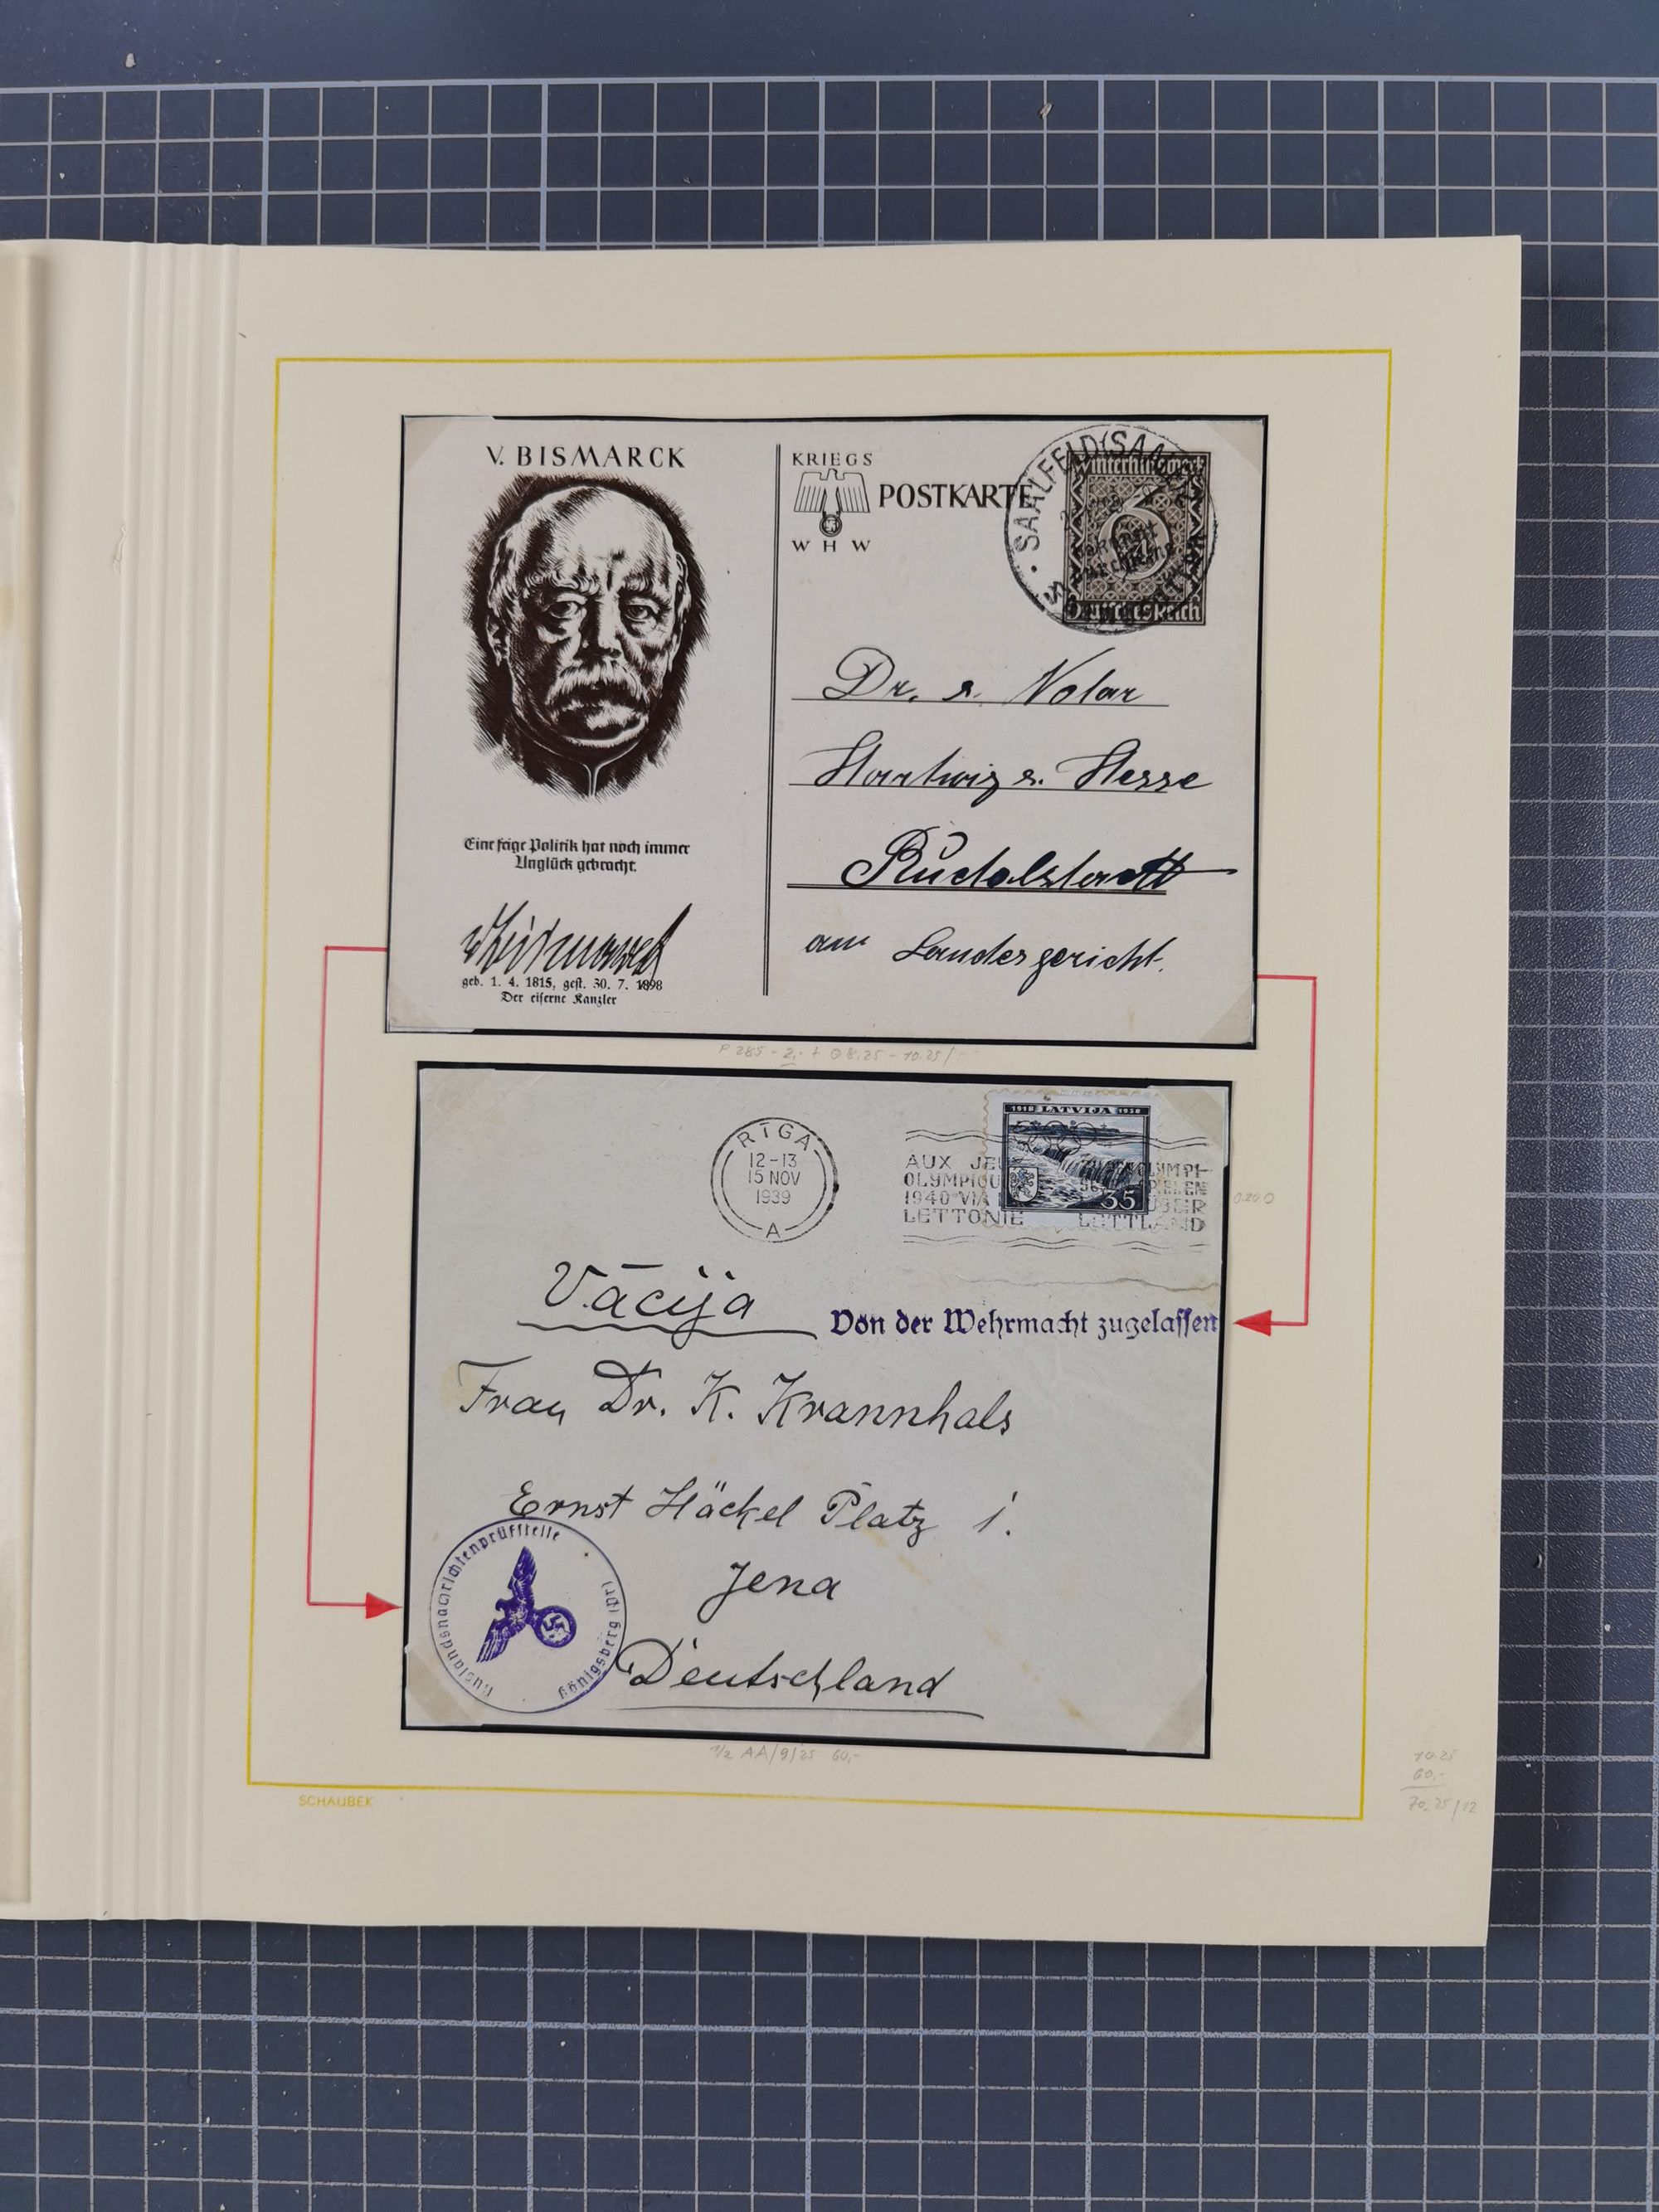 V. BISMARCK
Eine feige Politik hat noch immer
Unglück gebracht.
geb. 1. 4. 1815, gest. 30. 7. 1898
Der eiserne Kanzler
KRIEGS
POSTKARTE
W H W
SAALFELD (SAALE)
Winterhilfswerk
6
Deutsches Reich
Dr. s. Notar
Hartwig s. Hesse
Rudolstadt
am Landesgericht.
P 285 - 2,- + 8,25 - 10.25/
RĪGA
12-13
15 NOV
1939
A
1918 LATVIJA 1938
35
AUX JEUX
OLYMPIQU
1940 VIA
LETTONIE
OLYMPI-
SPIELEN
ÜBER
LETTLAND
0.20
Vācija
Von der Wehrmacht zugelassen
Frau Dr. K. Krannhals
Ernst Häckel Platz 1.
Jena
Deutschland
Auslandsnachrichtenprüfstelle
Königsberg (Pr)
1/2 AA/9/25 60,-
SCHAUBEK
10.25
60.-
70,25/12